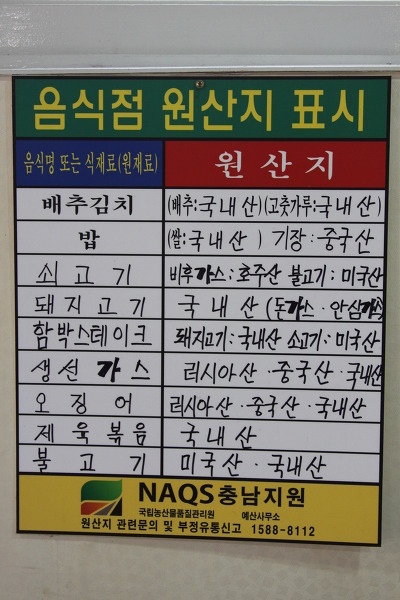 음식점 원산지 표시
음식명 또는 식재료(원재료) 원산지
배추김치 (배추:국내산)(고춧가루:국내산)
밥 (쌀:국내산) 기장:중국산
쇠고기 비후가스:호주산 불고기:미국산
돼지고기 국내산(돈가스·안심가스)
함박스테이크 돼지고기:국내산 소고기:미국산
생선가스 러시아산·중국산·국내산
오징어 러시아산·중국산·국내산
제육볶음 국내산
불고기 미국산·국내산
NAQS충남지원
국립농산물품질관리원 예산사무소
원산지 관련문의 및 부정유통신고 1588-8112